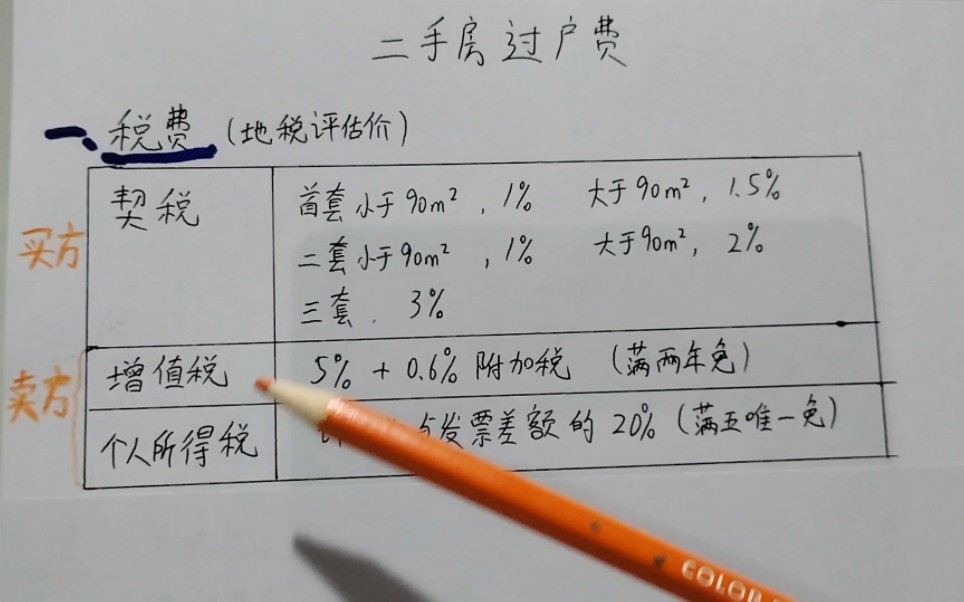 二手房过户费
一、税费(地税评估价)
买方
契税
首套小于90m²,1% 大于90m²,1.5%
二套小于90m²,1% 大于90m²,2%
三套、3%
卖方
增值税
5% + 0.6% 附加税 (满两年免)
个人所得税
发票差额的20%(满五唯一免)
COLOR